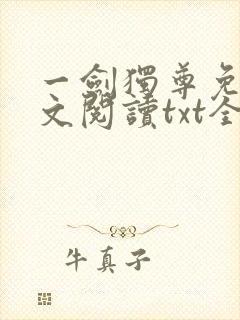 一劍獨尊免
文閱讀txt全
牛真子